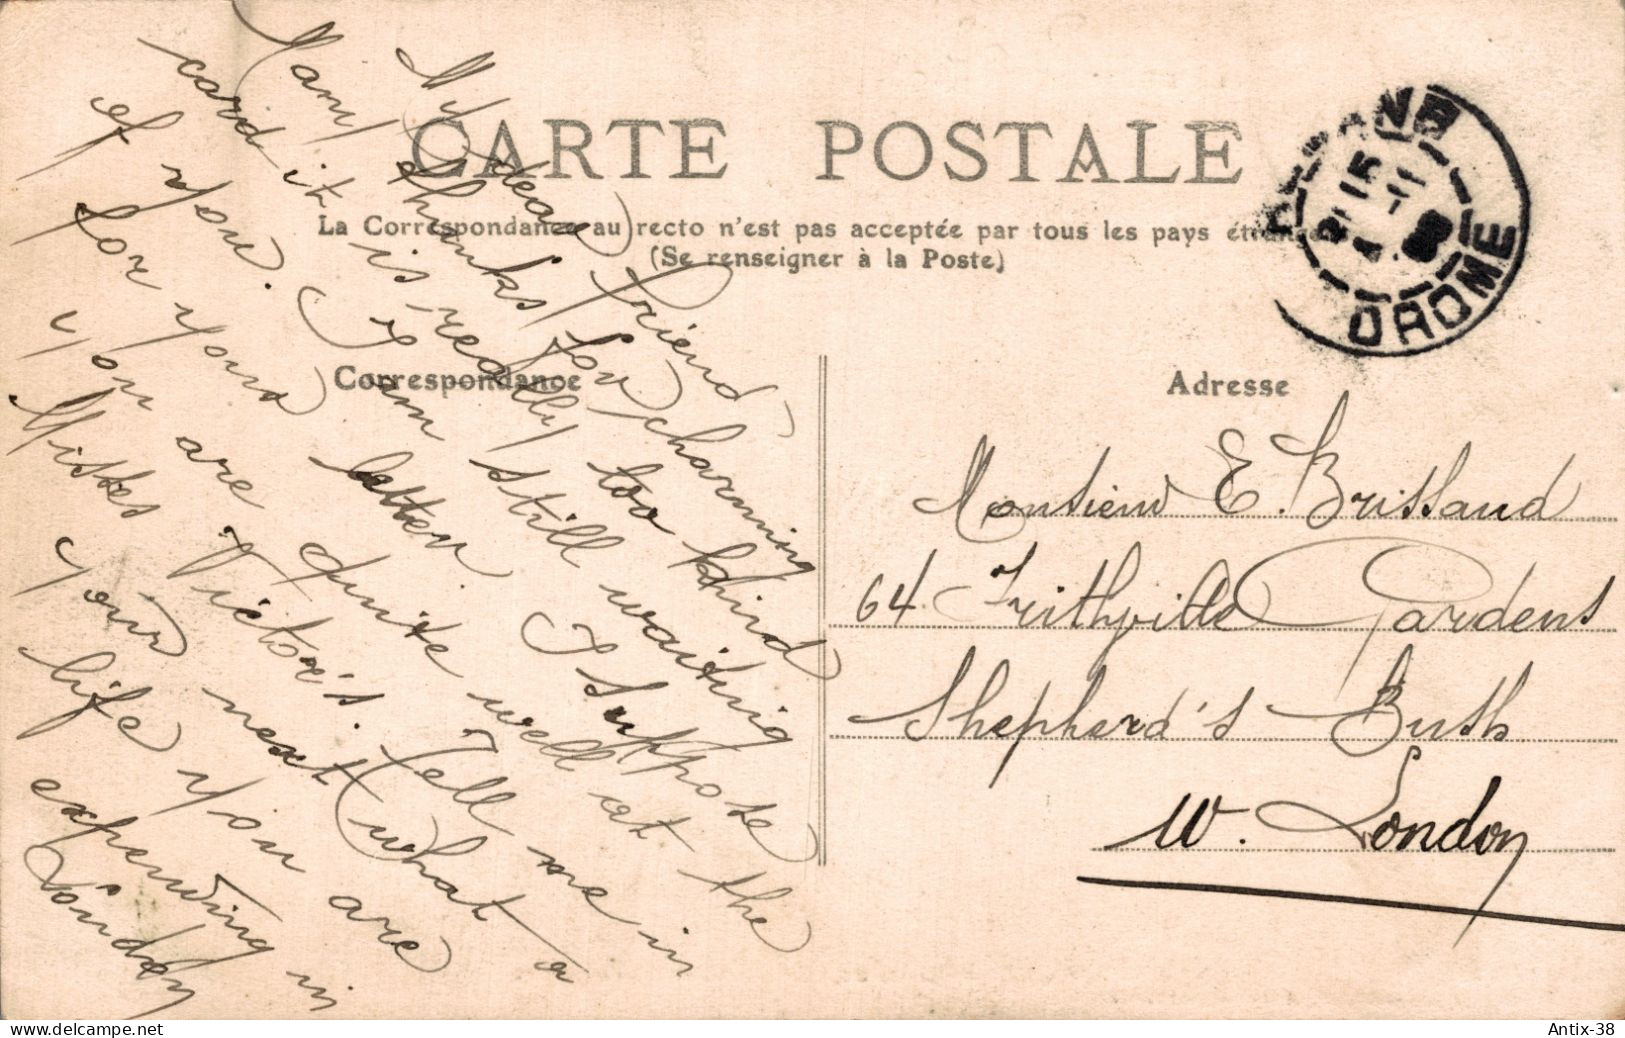 CARTE POSTALE
La Correspondance au recto n'est pas acceptée par tous les pays étrangers
(Se renseigner à la Poste)
Correspondance
Adresse
DROME
My dear friend
Many thanks for charming
card it is really too kind
of you. I am still waiting
for your letter. I suppose
you are quite well at the
Misses Victor's. Tell me in
your next what a
life you are
expending in
London
Monsieur E. Brissaud
64 Frithville Gardens
Shepherd's Bush
W. London
www.delcampe.net
Antix-38